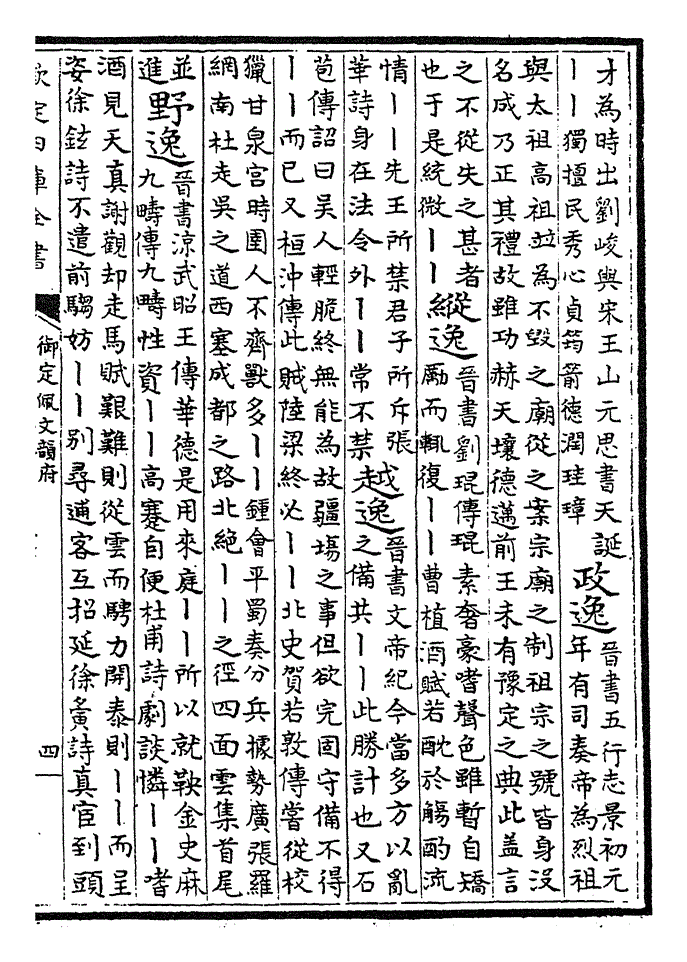 才為時出劉峻與宋玉山元思書天誕
丨丨獨擅民秀心貞筠箭德潤珪璋
政逸
晉書五行志景初元
年有司奏帝為烈祖
與太祖高祖並為不毀之廟從之案宗廟之制祖宗之號皆身沒
名成乃正其禮故雖功赫天壤德邁前王未有豫定之典此蓋言
之不從失之甚者
也于是統微丨丨
縱逸
晉書劉琨傳琨素奢豪嗜聲色雖暫自矯
勵而輒復丨丨曹植酒賦若酖於觴酌流
情丨丨先王所禁君子所斥張
華詩身在法令外丨丨常不禁
越逸
晉書文帝紀今當多方以亂
之備共丨丨此勝計也又石
苞傳詔曰吳人輕脆終無能為故疆埸之事但欲完固守備不得
丨丨而已又桓沖傳此賊陸梁終必丨丨北史賀若敦傳嘗從校
獵甘泉宮時圍人不齊獸多丨丨鍾會平蜀奏分兵據勢廣張羅
網南杜走吳之道西塞成都之路北絕丨丨之徑四面雲集首尾
並
進
野逸
晉書涼武昭王傳華德是用來庭丨丨所以就鞅金史麻
九疇傳九疇性資丨丨高蹇自便杜甫詩劇談憐丨丨嗜
酒見天真謝觀却走馬賦艱難則從雲而騁力開泰則丨丨而呈
姿徐鉉詩不遣前騶妨丨丨別尋逋客互招延徐夤詩真宦到頭
欽定四庫全書
御定佩文韻府
四